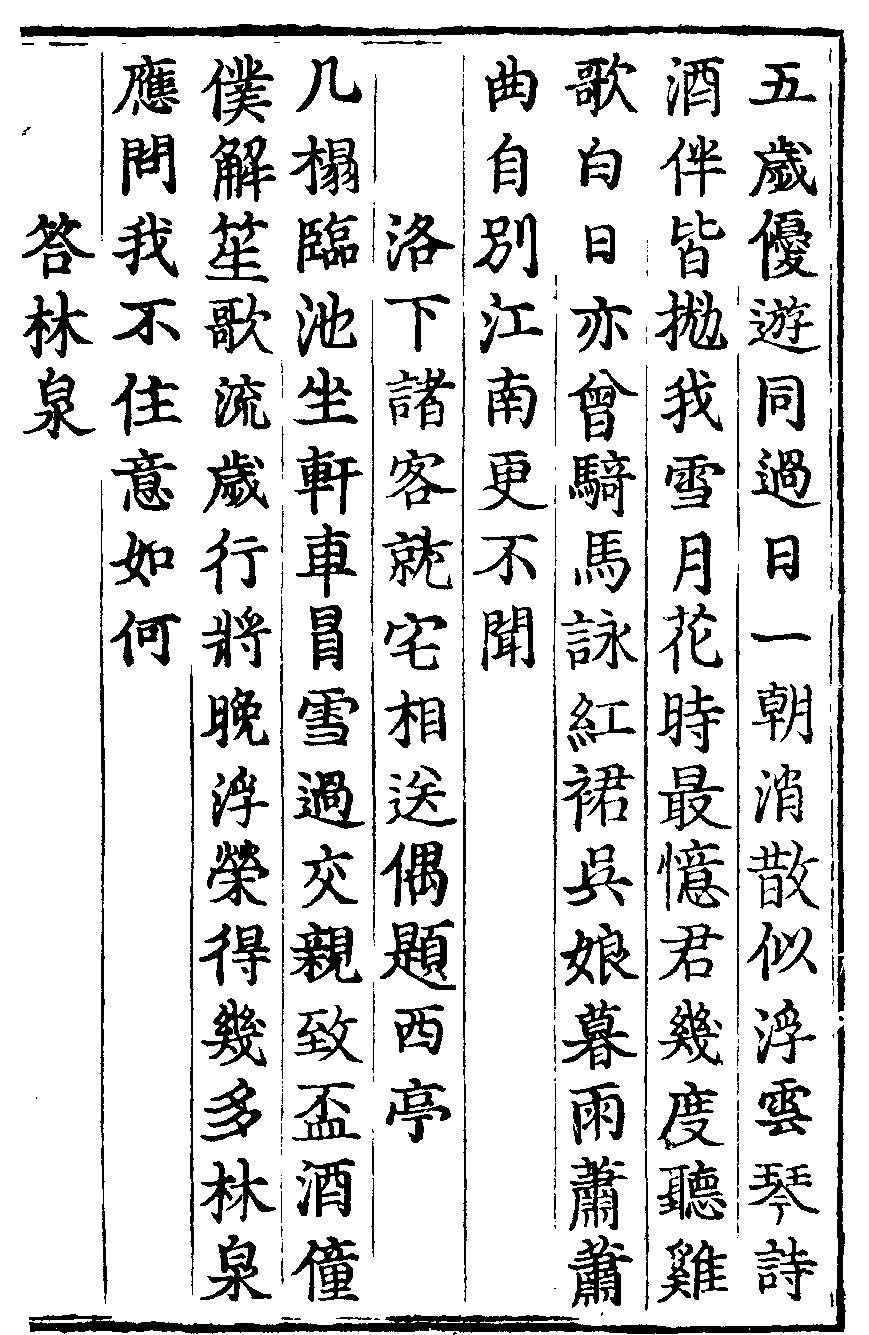 五歲優遊同過日一朝消散似浮雲琴詩
酒伴皆拋我雪月花時最憶君幾度聽雞
歌白日亦曾騎馬詠紅裙吳娘暮雨蕭蕭
曲自別江南更不聞
洛下諸客就宅相送偶題西亭
几榻臨池坐軒車冒雪過交親致盃酒僮
僕解笙歌流歲行將晚浮榮得幾多林泉
應問我不住意如何
答林泉